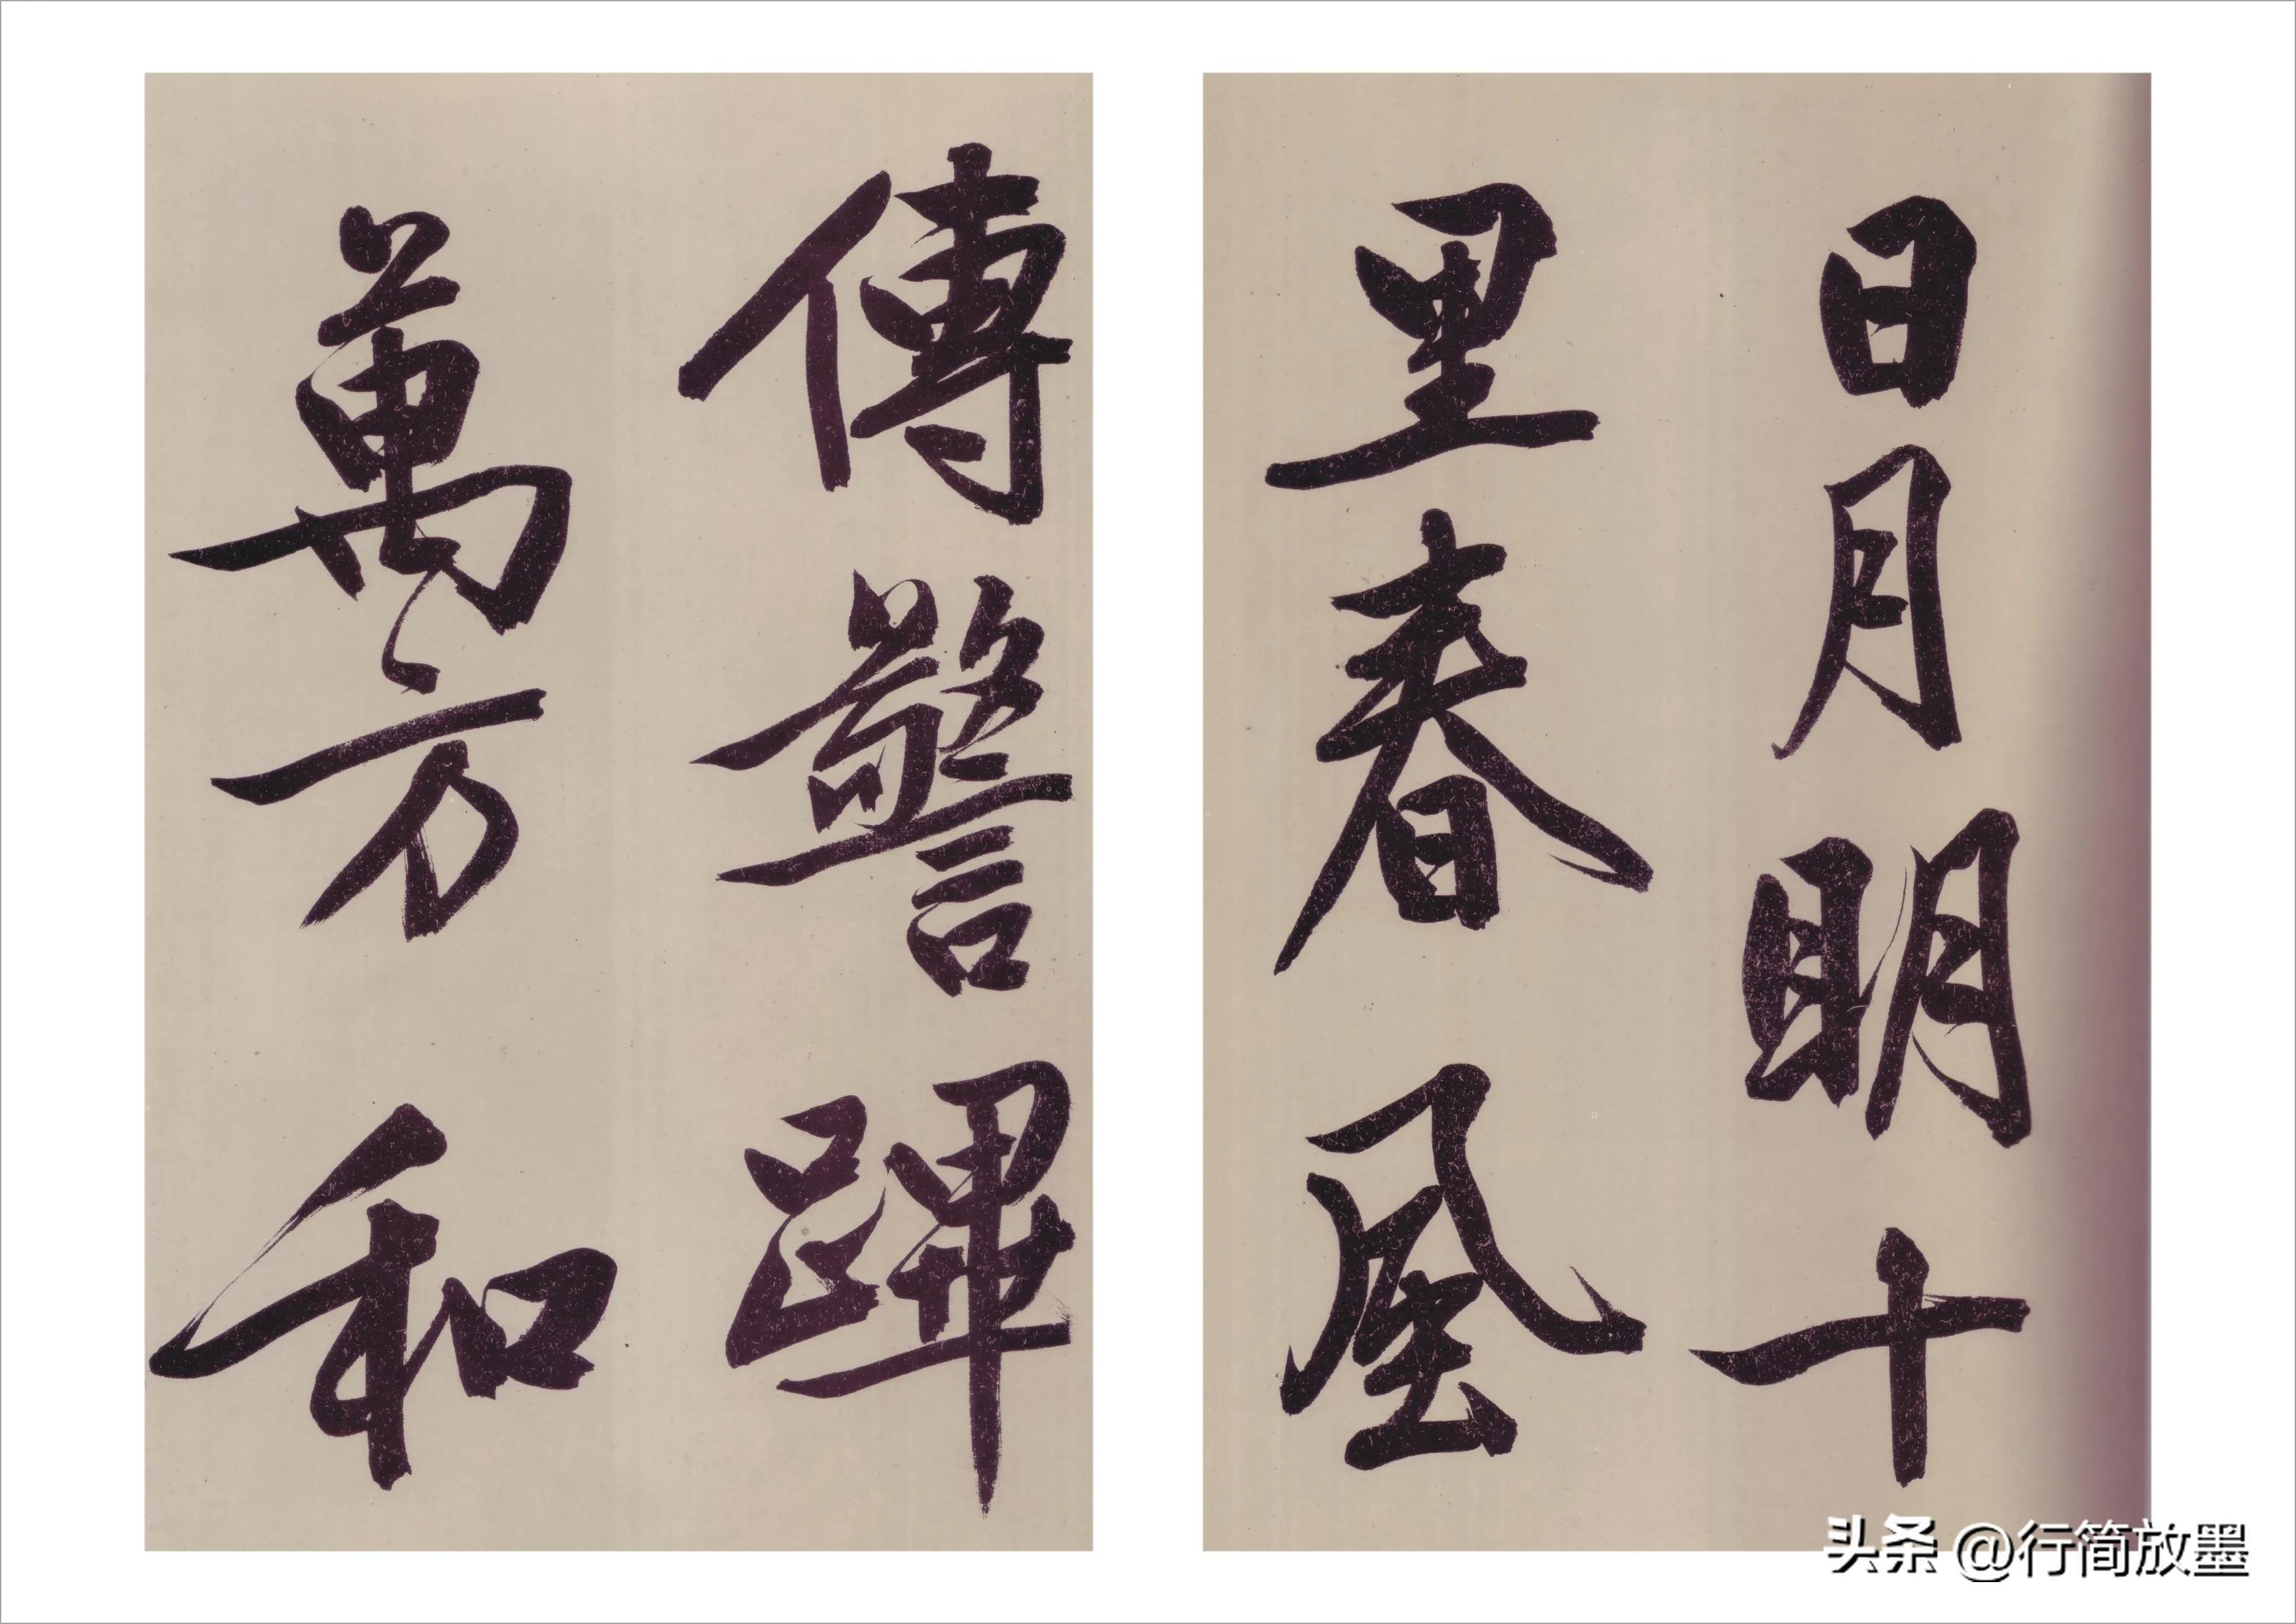 日月明十
里春風
傳警蹕
萬方和
头条 @行简放墨